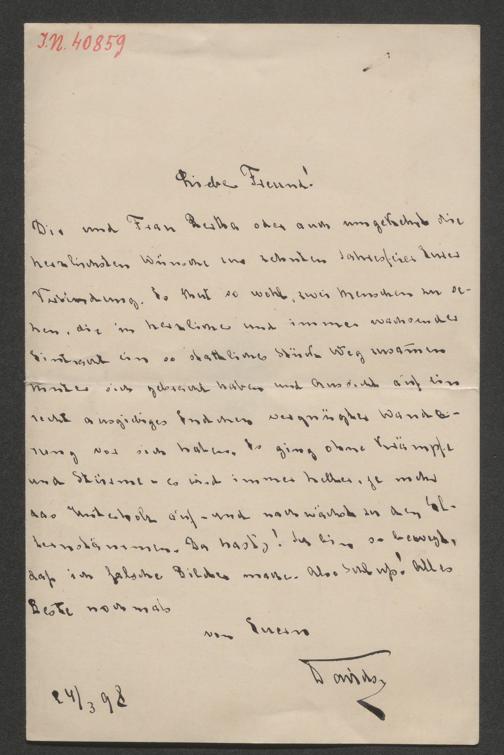 I.N. 40859
Lieber Freund!
Dir und Frau Bertha oder auch umgekehrt die
herzlichsten Wünsche zur zehnten Jahresfeier Eurer
Verbindung. Es thut so wohl, zwei Menschen zu se-
hen, die in herzlicher und immer wachsender
Eintracht ein so stattliches Stück Weg zusamen
hinter sich gebracht haben und Aussicht auf ein
recht ausgiebiges Endchen vergnügter Wande-
rung vor sich haben. Es ging ohne Krämpfe
und Stürme - es wird immer heller, je mehr
das Unterholz auf- und nachwächst zu den El-
ternstämmen. Da hast's! Ich bin so bewegt,
daß ich falsche Bilder mache. Also Schluß! Alles
Beste nochmals
von Euerm
24/3 98